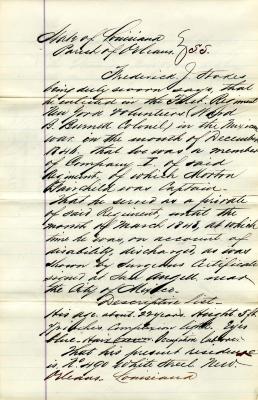 State of Louisiana
Parish of Orleans } SS.
Frederick J.
being duly sworn says, that
he enlisted in the First Regiment
New York Volunteers (Ward
B. Burnett Colonel) in the Mexican
war in the month of December
1846, that he was a member
of Company I. of said
Regiment, of which Morton
Fairchild was Captain.
That he served as a private
of said Regiment, until the
month of March 1848, at which
time he was, on account of
disability, discharged, as was
shown by Surgeons Certificate
signed at San Angel near
the City of Mexico.
Descriptive list.
His age about 22 years. Height 5 ft.
inches Complexion light. Eyes
blue. Hair
That his present residence
is No 490 White Street New-
Orleans, Louisiana